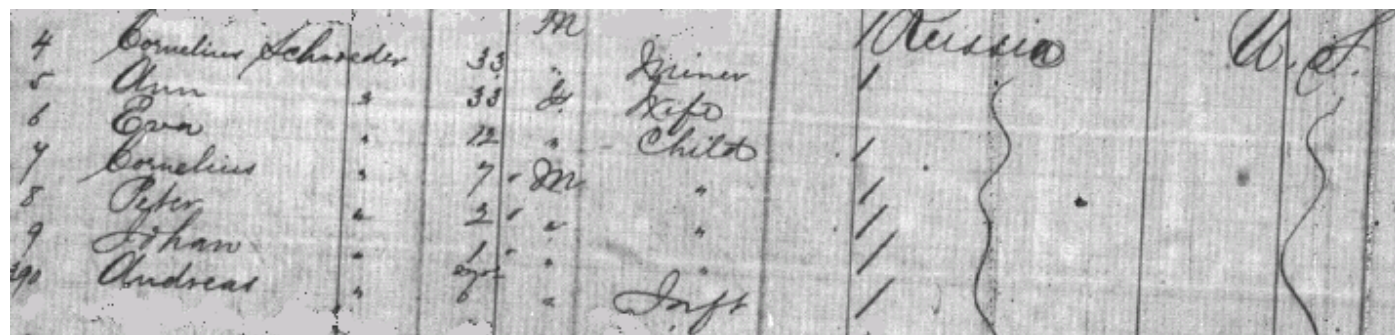 M
4 Cornelius Schroeder 33 " Miner / Russia U. S.
5 Ann " 33 F. Wife /
6 Eva " 12 " Child /
7 Cornelius " 7 M " /
8 Peter " 2 " " /
9 Johan " 1 " " /
390 Andreas " " Inft /